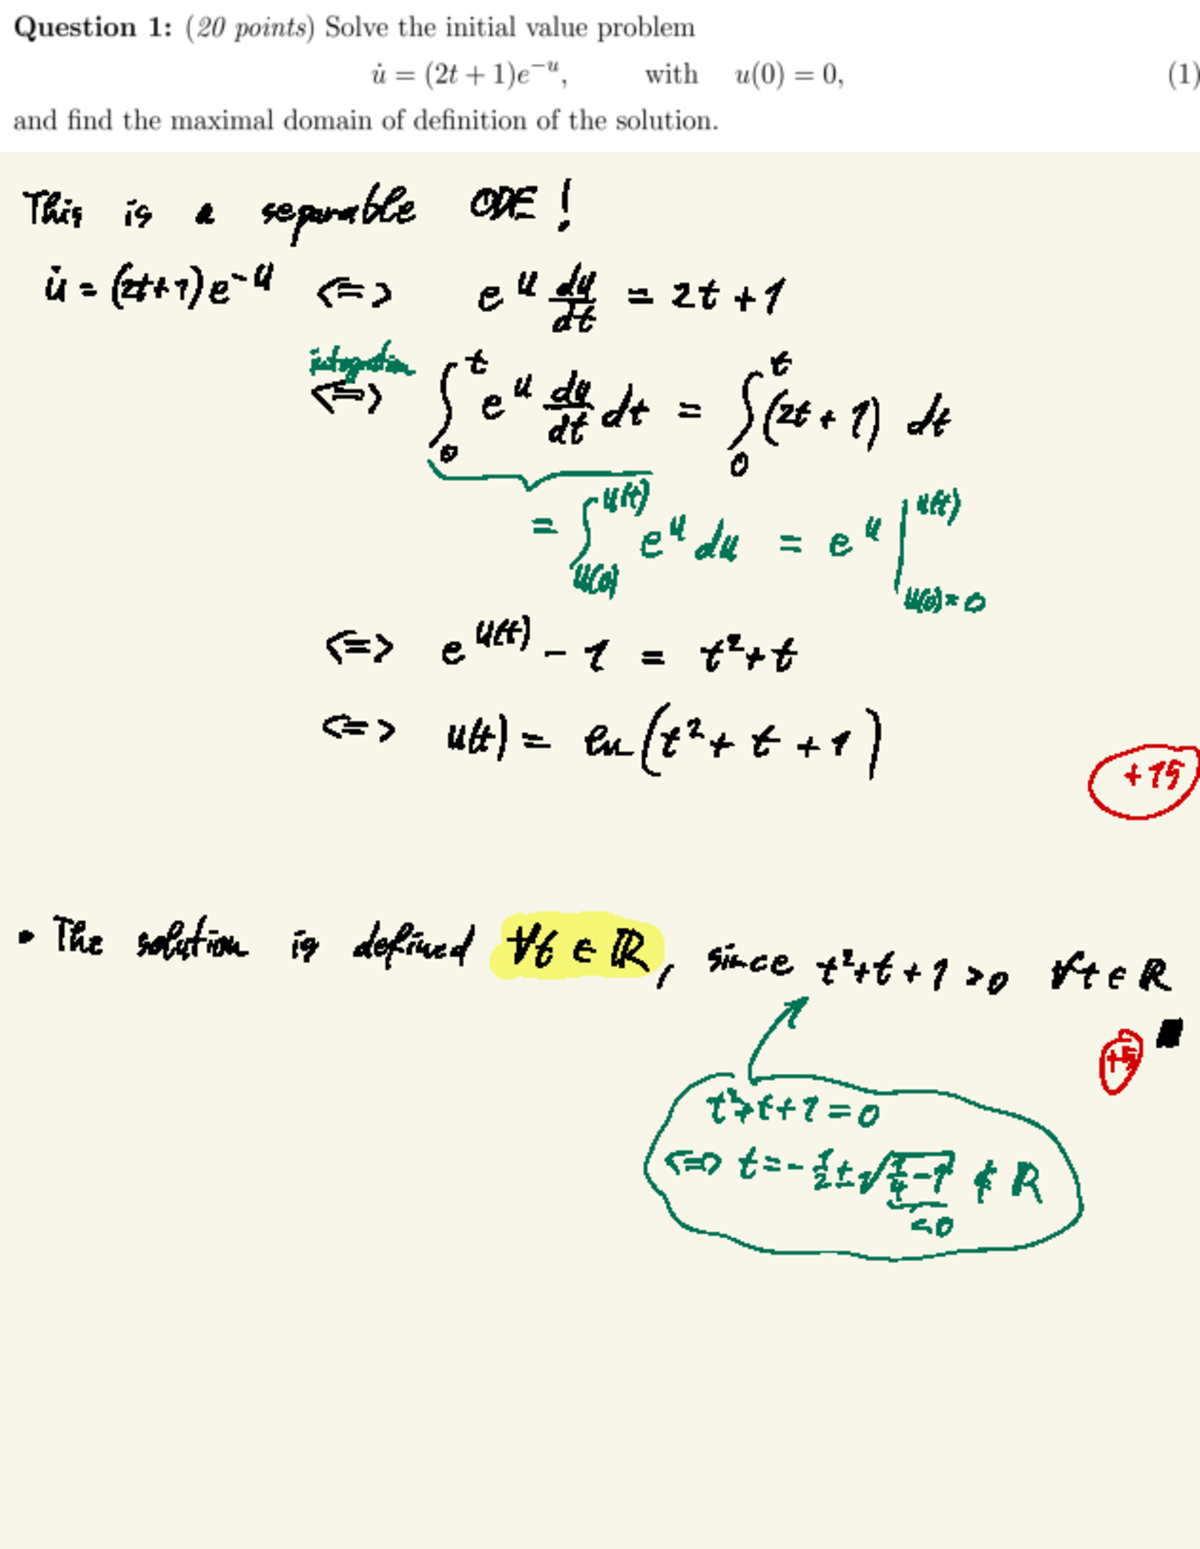 Question 1: (20 points) Solve the initial value problem
u̇ = (2t + 1)e^{-u}, with u(0) = 0, (1)
and find the maximal domain of definition of the solution.
This is a separable ODE!
u̇ = (2t+1)e^{-u} <=> e^u du/dt = 2t+1
integration
<=> ∫_0^t e^u du/dt dt = ∫_0^t (2t+1) dt
= ∫_{u(0)}^{u(t)} e^u du = e^u |_{u(0)=0}^{u(t)}
<=> e^{u(t)} - 1 = t²+t
<=> u(t) = ln(t²+t+1)
+15
• The solution is defined ∀t∈ℝ, since t²+t+1>0 ∀t∈ℝ ■
+5
t²+t+1=0
<=> t=-1/2±√(1/4-1) ∉ ℝ
<0